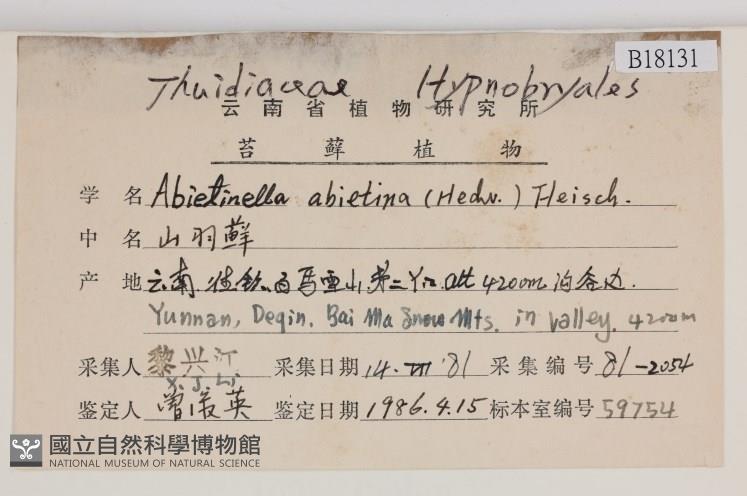 B18131
Thuidiaceae Hypnobryales
云南省植物研究所
苔藓植物
学名 Abietinella abietina (Hedw.) Fleisch.
中名 山羽藓
产地 云南.德钦.白马雪山.第二 alt 4200m 沟谷边.
Yunnan, Deqin. Bai Ma Snow Mts. in valley. 4200m
采集人 黎兴江 采集日期 14.VIII '81 采集编号 81-2054
X. J. Li
鉴定人 曾淑英 鉴定日期 1986.4.15 标本室编号 59754
國立自然科學博物館
NATIONAL MUSEUM OF NATURAL SCIENCE